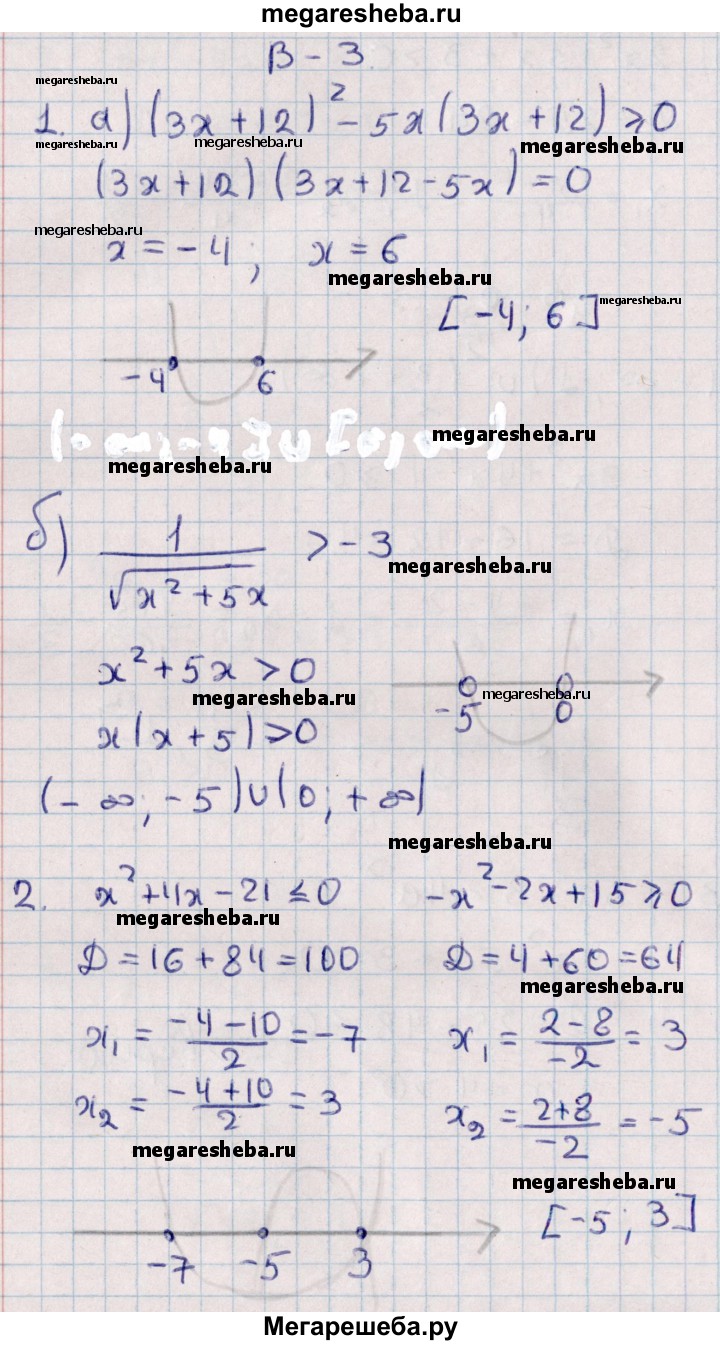 megaresheba.ru
В - 3.
megaresheba.ru
1. а) (3x + 12)² - 5x(3x + 12) ⩾ 0
megaresheba.ru megaresheba.ru megaresheba.ru
(3x + 12) (3x + 12 - 5x) = 0
megaresheba.ru
x = - 4 ; x = 6
megaresheba.ru
[ -4; 6 ]
megaresheba.ru
-4 6
megaresheba.ru
megaresheba.ru
б) 1 / √(x² + 5x) > - 3
megaresheba.ru
x² + 5x > 0
megaresheba.ru megaresheba.ru
-5 0
x(x + 5) > 0
(- ∞; -5) ∪ (0; + ∞)
megaresheba.ru
2. x² + 4x - 21 ⩽ 0 -x² - 2x + 15 ⩾ 0
megaresheba.ru
D = 16 + 84 = 100 D = 4 + 60 = 64
megaresheba.ru
x₁ = (-4 - 10)/2 = -7 x₁ = (2 - 8)/-2 = 3
x₂ = (-4 + 10)/2 = 3 x₂ = (2 + 8)/-2 = -5
megaresheba.ru
megaresheba.ru
[ -5 ; 3 ]
-7 -5 3
Мегарешеба.ру